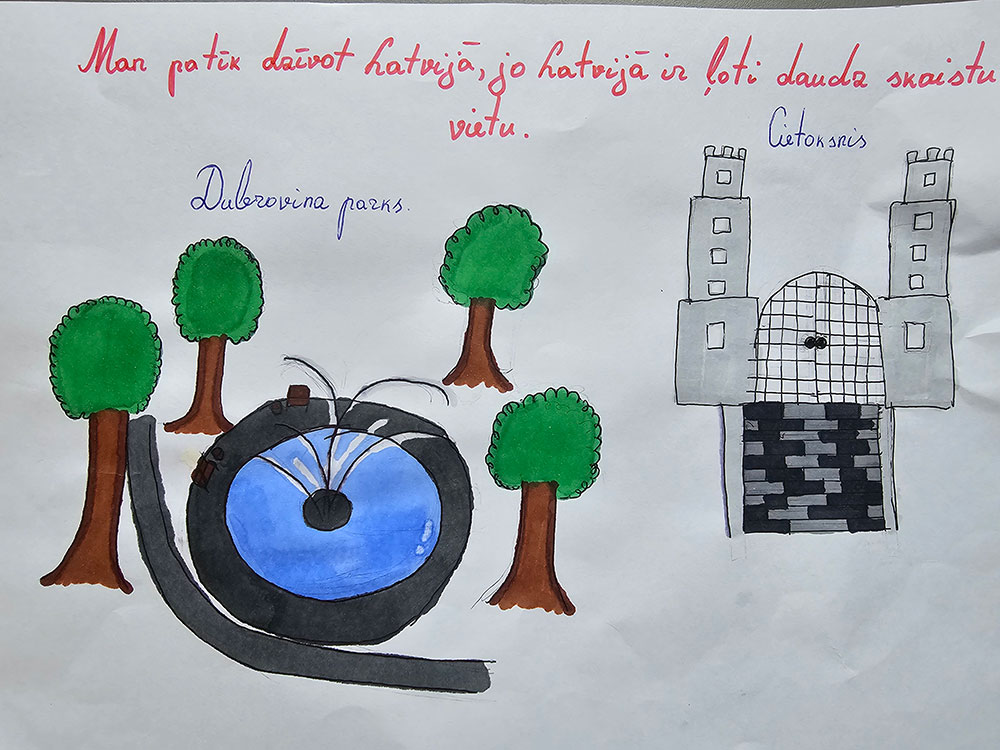 Man patīk dzīvot Latvijā, jo Latvijā ir ļoti daudz skaistu
vietu.
Cietoksnis
Dubrovina parks.